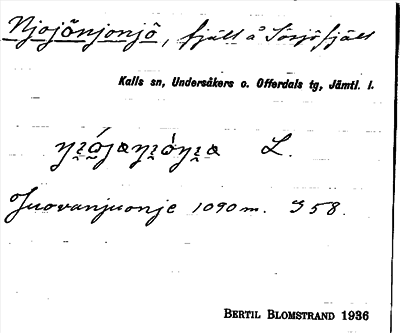 Njojönjonjö, fjäll å Sösjöfjäll
Kalls sn, Undersåkers o. Offerdals tg, Jämtl. l.
L.
Juovanjuonje 1090 m. S 58.
BERTIL BLOMSTRAND 1936